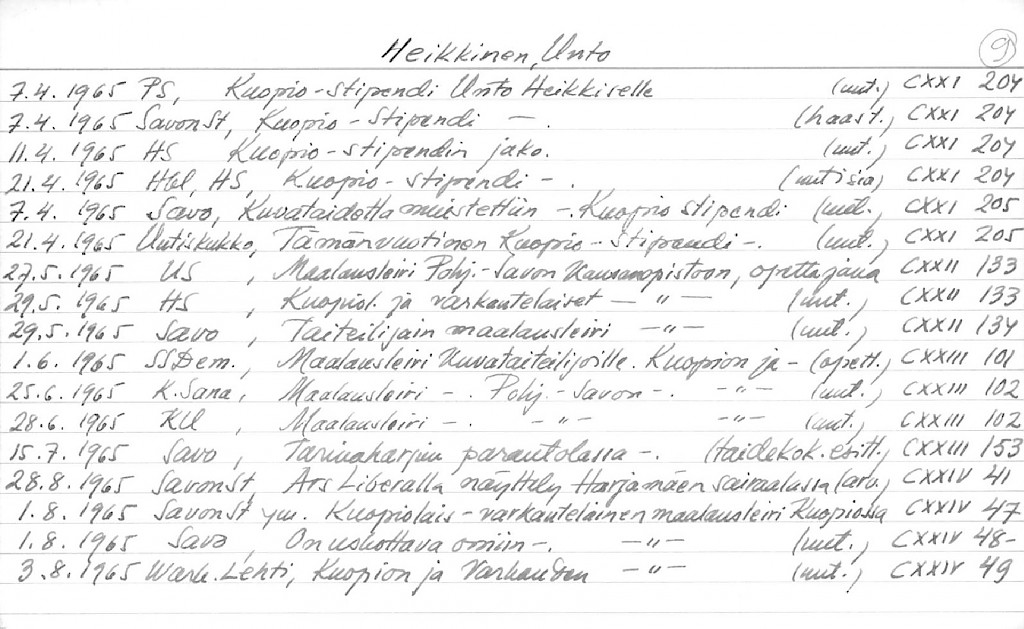 Heikkinen, Unto 9
7.4. 1965 PS, Kuopio-stipendi Unto Heikkiselle (uut.) CXXI 204
7.4. 1965 SavonSt, Kuopio-Stipendi —. (haast.) CXXI 204
11.4. 1965 HS Kuopio-stipendin jako. (uut.) CXXI 204
21.4. 1965 Hbl, HS, Kuopio-stipendi -. (uutisia) CXXI 204
7.4. 1965 Savo, Kuvataidetta muistettiin -. Kuopio stipendi (uut.) CXXI 205
21.4. 1965 Uutiskukko, Tämänvuotinen Kuopio-Stipendi -. (uut.) CXXI 205
27.5. 1965 US, Maalausleiri Pohj.-Savon Kansanopistoon, opettajana CXXII 133
29.5. 1965 HS Kuopiol. ja varkautelaiset — " — (uut.) CXXII 133
29.5. 1965 Savo, Taiteilijain maalausleiri — " — (uut.) CXXII 134
1.6. 1965 SSDem., Maalausleiri Kuvataiteilijoille. Kuopion ja - (opett.) CXXIII 101
25.6. 1965 K.Sana, Maalausleiri -. Pohj.-Savon -. - " - (uut.) CXXIII 102
28.6. 1965 KU, Maalausleiri -. - " - - " - (uut.) CXXIII 102
15.7. 1965 Savo, Tarinaharjun parantolassa -. (taidekok. esitt.) CXXIII 153
28.8. 1965 SavonSt, Ars Liberalla näyttely Harjamäen sairaalassa (arv.) CXXIV 41
1.8. 1965 SavonSt ym. Kuopiolais-varkautelainen maalausleiri Kuopiossa CXXIV 47
1.8. 1965 Savo, On uskottava omiin -. — " — (uut.) CXXIV 48-
3.8. 1965 Wark. Lehti, Kuopion ja Varkauden — " — (uut.) CXXIV 49